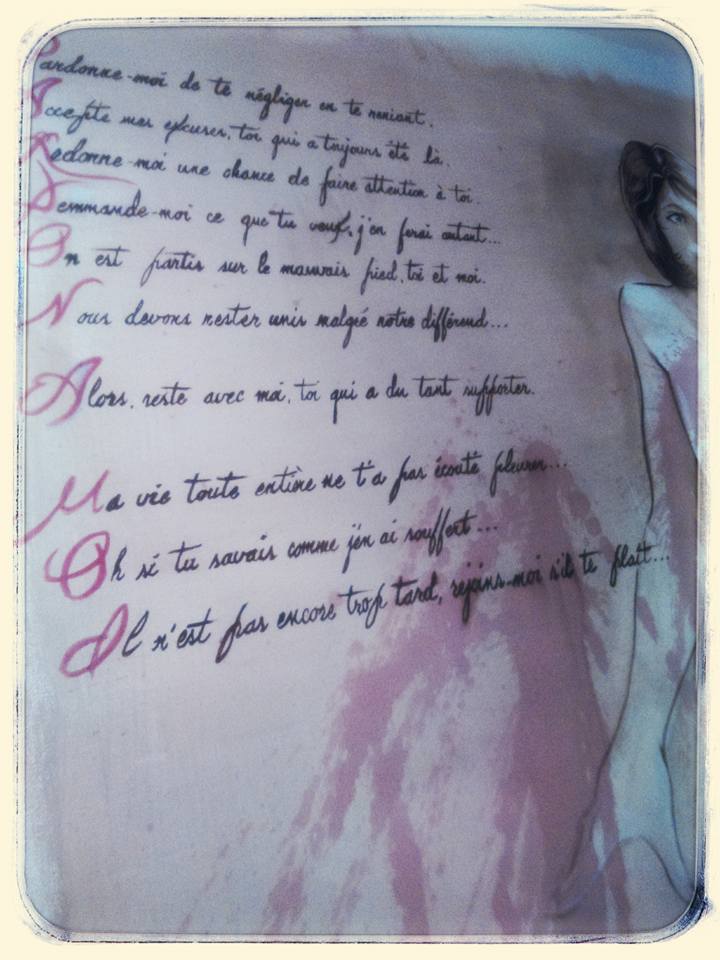 Pardonne-moi de te négliger en te reniant.
Accepte mes excuses, toi qui a toujours été là.
Redonne-moi une chance de faire attention à toi.
Demmande-moi ce que tu veux, j'en ferai autant...
On est partis sur le mauvais pied, toi et moi.
Nous devons rester unis malgré notre différend...
Alors, reste avec moi, toi qui a du tant supporter.
Ma vie toute entière ne t'a pas écouté pleurer...
Oh si tu savais comme j'en ai souffert...
Il n'est pas encore trop tard, rejoins-moi s'il te plaît...